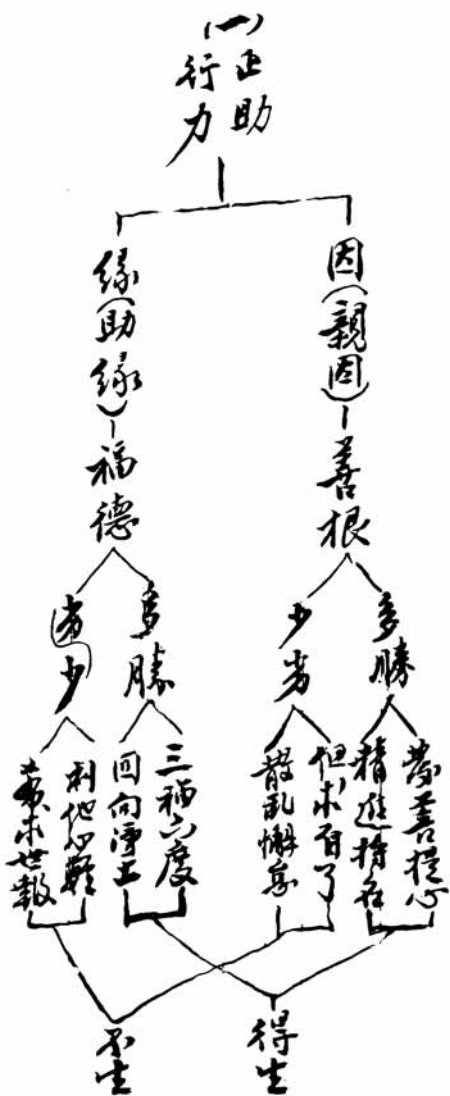 (一)正助
行力
因(親因)
善根
多勝
發菩提心
精進持名
少劣
但求自了
散乱懈怠
緣(助緣)
福德
多勝
三福六度
回向淨土
劣少
利他心輕
求世報
得生
不生